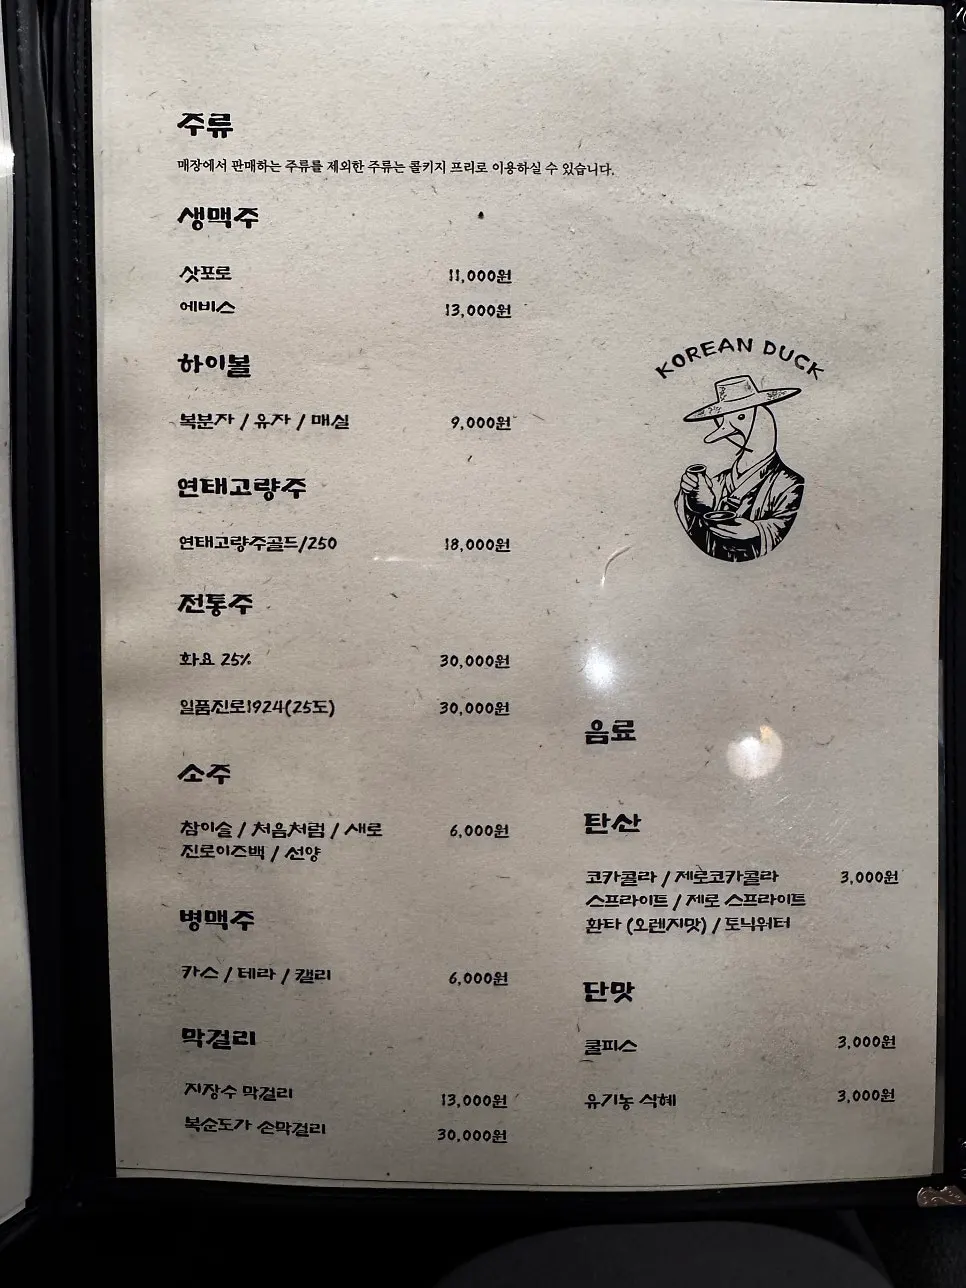 주류
매장에서 판매하는 주류를 제외한 주류는 콜키지 프리로 이용하실 수 있습니다.
생맥주
삿포로 11,000원
에비스 13,000원
하이볼
복분자 / 유자 / 매실 9,000원
연태고량주
연태고량주골드/250 18,000원
전통주
화요 25% 30,000원
일품진로1924(25도) 30,000원
소주
참이슬 / 처음처럼 / 새로 6,000원
진로이즈백 / 선양
병맥주
카스 / 테라 / 캘리 6,000원
막걸리
지장수 막걸리 13,000원
복순도가 손막걸리 30,000원
KOREAN DUCK
음료
탄산
코카콜라 / 제로코카콜라 3,000원
스프라이트 / 제로 스프라이트
환타 (오렌지맛) / 토닉워터
단맛
쿨피스 3,000원
유기농 식혜 3,000원